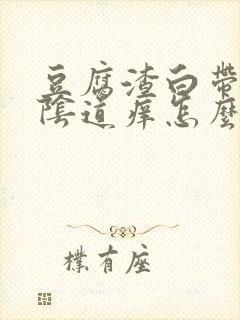 豆腐渣白带
陰道痒怎麽
樸有座